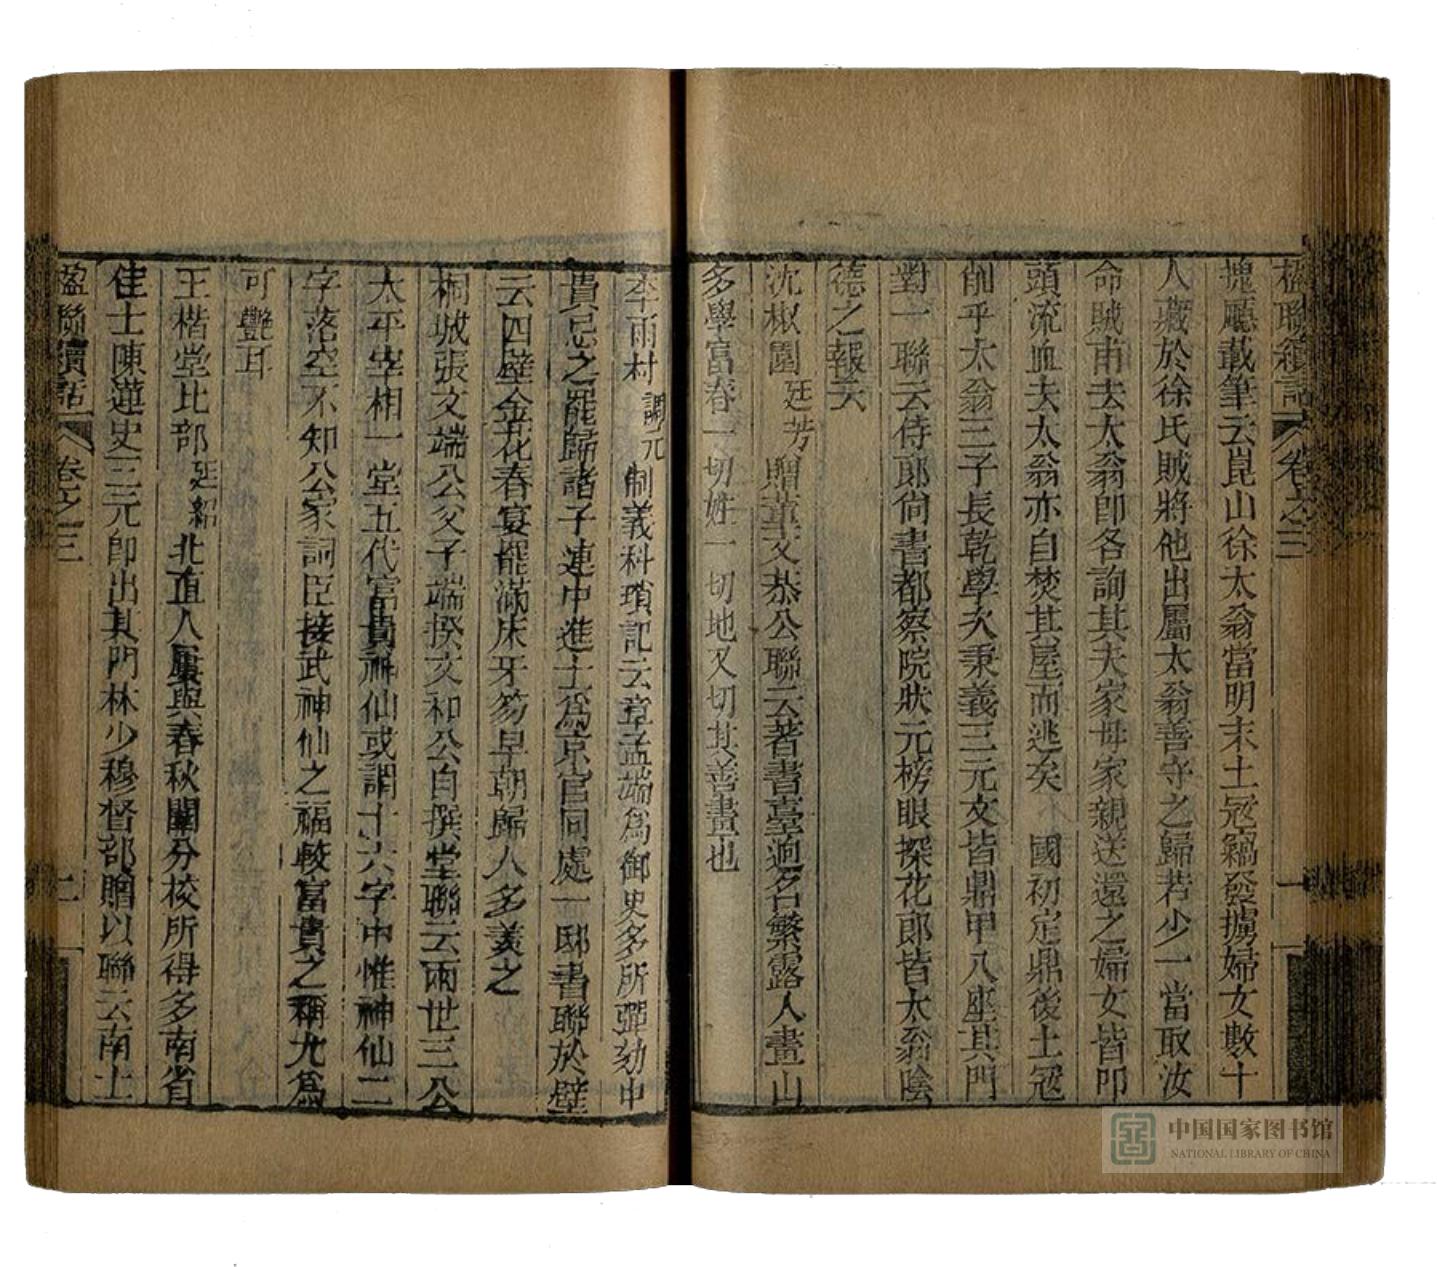 楹聯續話 卷之三 一
槐廳載筆云崑山徐太翁當明末土冦竊發擄婦女數十
人藏於徐氏賊將他出屬太翁善守之歸若少一當取汝
命賊甫去太翁卽各詢其夫家母家親送還之婦女皆叩
頭流血夫太翁亦自焚其屋而逃矣 國初定鼎後土冦
削平太翁三子長乾學次秉義三元文皆鼎甲八座其門
對一聯云侍郎尙書都察院狀元榜眼探花郎皆太翁陰
德之報云
沈椒園廷芳贈董文恭公聯云著書臺逈名繁露人畫山
多學富春一切姓一切地又切其善畫也
李雨村調元制義科瑣記云章孟端爲御史多所彈劾中
貴忌之罷歸諸子連中進士爲京官同處一邸書聯於壁
云四壁金花春宴罷滿床牙笏早朝歸人多羨之
桐城張文端公父子端揆文和公自撰堂聯云兩世三公
太平宰相一堂五代富貴神仙或謂十六字中惟神仙二
字落空不知公家詞臣接武神仙之福較富貴之稱尤爲
可艷耳
王楷堂比部廷紹北直人屢與春秋闈分校所得多南省
佳士陳蓮史三元卽出其門林少穆督部贈以聯云南士
楹聯續話 卷之三 二
中国国家图书馆
NATIONAL LIBRARY OF CHINA